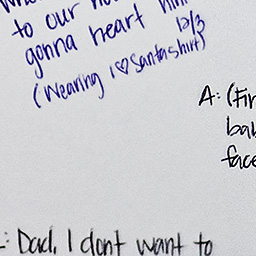 to our
gonna heart him
12/3
(Wearing I ♡ Santa shirt)
A: (Fir
bab
face
: Dad, I dont want to